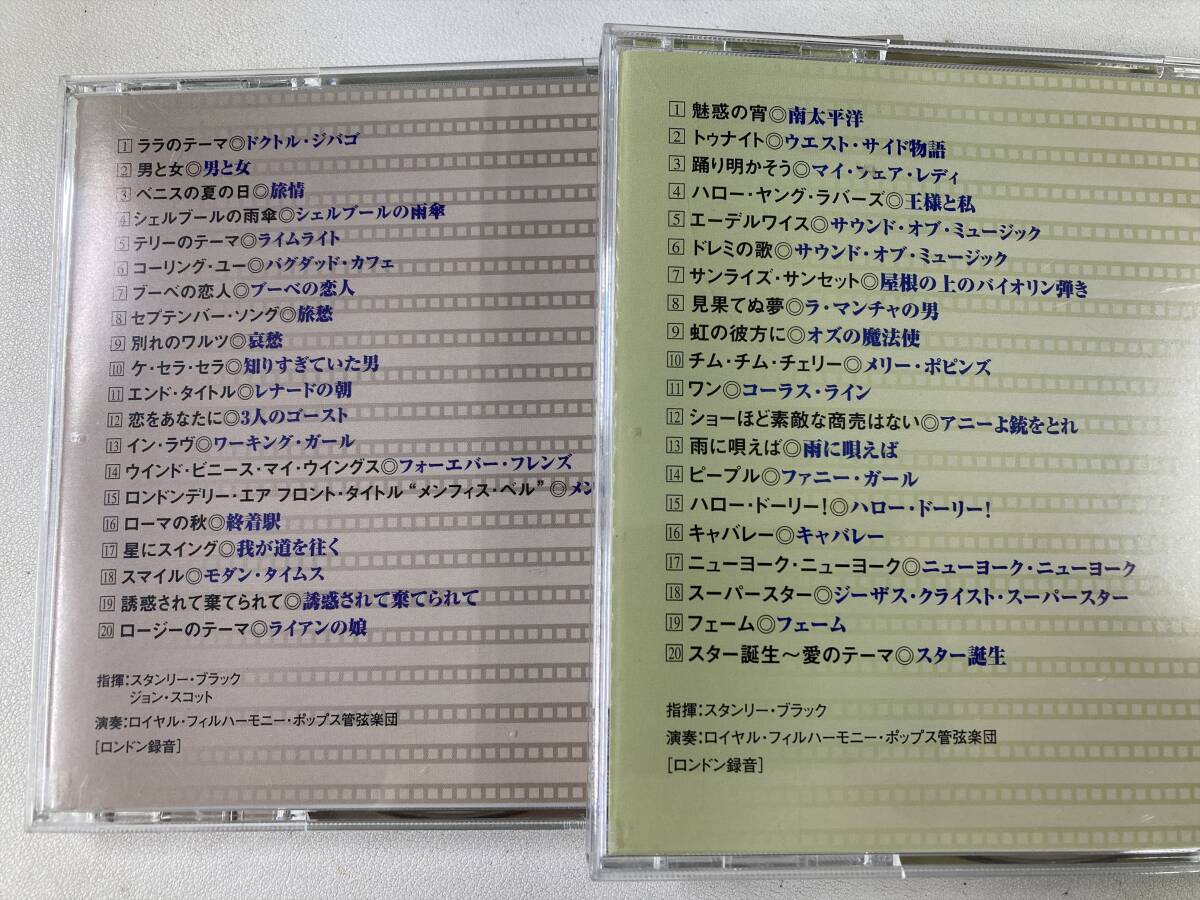 1 ララのテーマ◎ドクトル・ジバゴ
2 男と女◎男と女
3 ベニスの夏の日◎旅情
4 シェルブールの雨傘◎シェルブールの雨傘
5 テリーのテーマ◎ライムライト
6 コーリング・ユー◎バグダッド・カフェ
7 ブーベの恋人◎ブーベの恋人
8 セプテンバー・ソング◎旅愁
9 別れのワルツ◎哀愁
10 ケ・セラ・セラ◎知りすぎていた男
11 エンド・タイトル◎レナードの朝
12 恋をあなたに◎3人のゴースト
13 イン・ラヴ◎ワーキング・ガール
14 ウインド・ビニース・マイ・ウイングス◎フォーエバー・フレンズ
15 ロンドンデリー・エア フロント・タイトル“メンフィス・ベル”◎メン
16 ローマの秋◎終着駅
17 星にスイング◎我が道を往く
18 スマイル◎モダン・タイムス
19 誘惑されて棄てられて◎誘惑されて棄てられて
20 ロージーのテーマ◎ライアンの娘
指揮：スタンリー・ブラック
ジョン・スコット
演奏：ロイヤル・フィルハーモニー・ポップス管弦楽団
[ロンドン録音]
1 魅惑の宵◎南太平洋
2 トゥナイト◎ウエスト・サイド物語
3 踊り明かそう◎マイ・フェア・レディ
4 ハロー・ヤング・ラバーズ◎王様と私
5 エーデルワイス◎サウンド・オブ・ミュージック
6 ドレミの歌◎サウンド・オブ・ミュージック
7 サンライズ・サンセット◎屋根の上のバイオリン弾き
8 見果てぬ夢◎ラ・マンチャの男
9 虹の彼方に◎オズの魔法使
10 チム・チム・チェリー◎メリー・ポピンズ
11 ワン◎コーラス・ライン
12 ショーほど素敵な商売はない◎アニーよ銃をとれ
13 雨に唄えば◎雨に唄えば
14 ピープル◎ファニー・ガール
15 ハロー・ドーリー！◎ハロー・ドーリー！
16 キャバレー◎キャバレー
17 ニューヨーク・ニューヨーク◎ニューヨーク・ニューヨーク
18 スーパースター◎ジーザス・クライスト・スーパースター
19 フェーム◎フェーム
20 スター誕生～愛のテーマ◎スター誕生
指揮：スタンリー・ブラック
演奏：ロイヤル・フィルハーモニー・ポップス管弦楽団
[ロンドン録音]